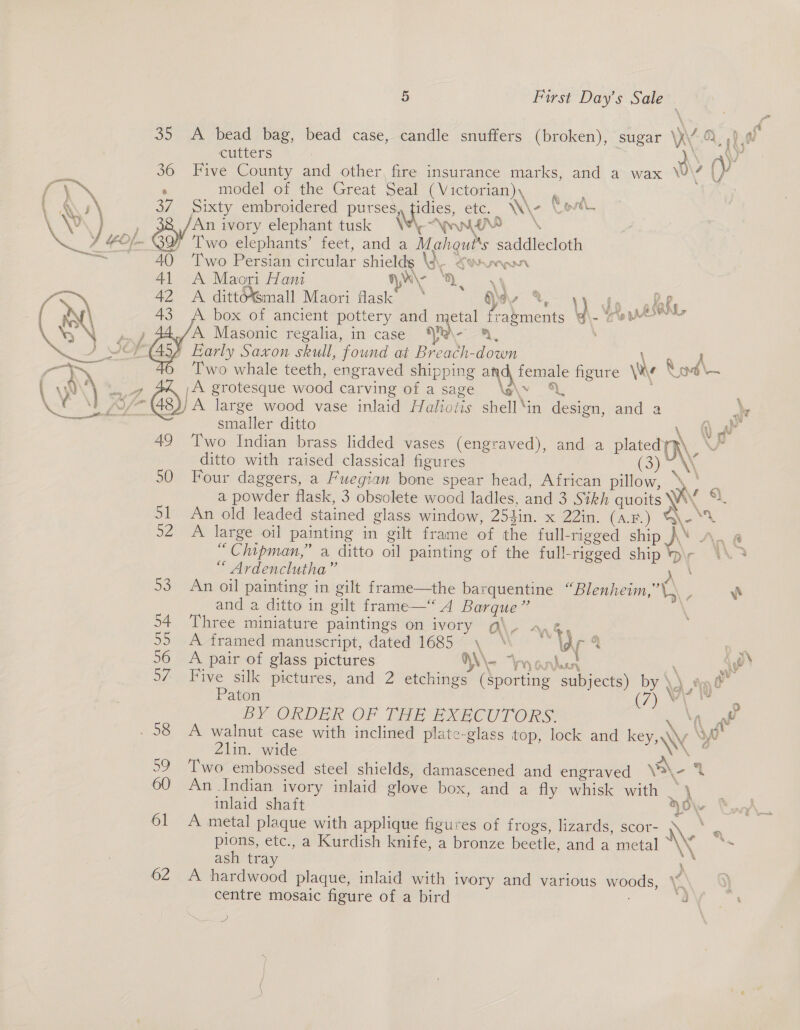 5 First Day's Sale
35 A bead bag, bead case, candle snuffers (broken), sugar
cutters
36 Five County and other fire insurance marks, and a wax
model of the Great Seal (Victorian)
37 Sixty embroidered purses, tidies, etc.
38 An ivory elephant tusk
39 Two elephants' feet, and a Mahout's saddlecloth
40 Two Persian circular shields
41 A Maori Hani
42 A ditto small Maori flask
43 A box of ancient pottery and metal fragments
44 A Masonic regalia, in case
45 Early Saxon skull, found at Breach-down
46 Two whale teeth, engraved shipping and female figure
47 A grotesque wood carving of a sage
48 A large wood vase inlaid Haliotis shell in design, and a
smaller ditto
49 Two Indian brass lidded vases (engraved), and a plated
ditto with raised classical figures (3)
50 Four daggers, a Fuegian bone spear head, African pillow,
a powder flask, 3 obsolete wood ladles, and 3 Sikh quoits
51 An old leaded stained glass window, 25½in. x 22in. (A.F.)
52 A large oil painting in gilt frame of the full-rigged ship
"Chipman," a ditto oil painting of the full-rigged ship
"Ardenclutha"
53 An oil painting in gilt frame—the barquentine "Blenheim,"
and a ditto in gilt frame—"A Barque"
54 Three miniature paintings on ivory
55 A framed manuscript, dated 1685
56 A pair of glass pictures
57 Five silk pictures, and 2 etchings (sporting subjects) by
Paton (7)
BY ORDER OF THE EXECUTORS.
58 A walnut case with inclined plate-glass top, lock and key,
21in. wide
59 Two embossed steel shields, damascened and engraved
60 An Indian ivory inlaid glove box, and a fly whisk with
inlaid shaft
61 A metal plaque with applique figures of frogs, lizards, scor-
pions, etc., a Kurdish knife, a bronze beetle, and a metal
ash tray
62 A hardwood plaque, inlaid with ivory and various woods,
centre mosaic figure of a bird